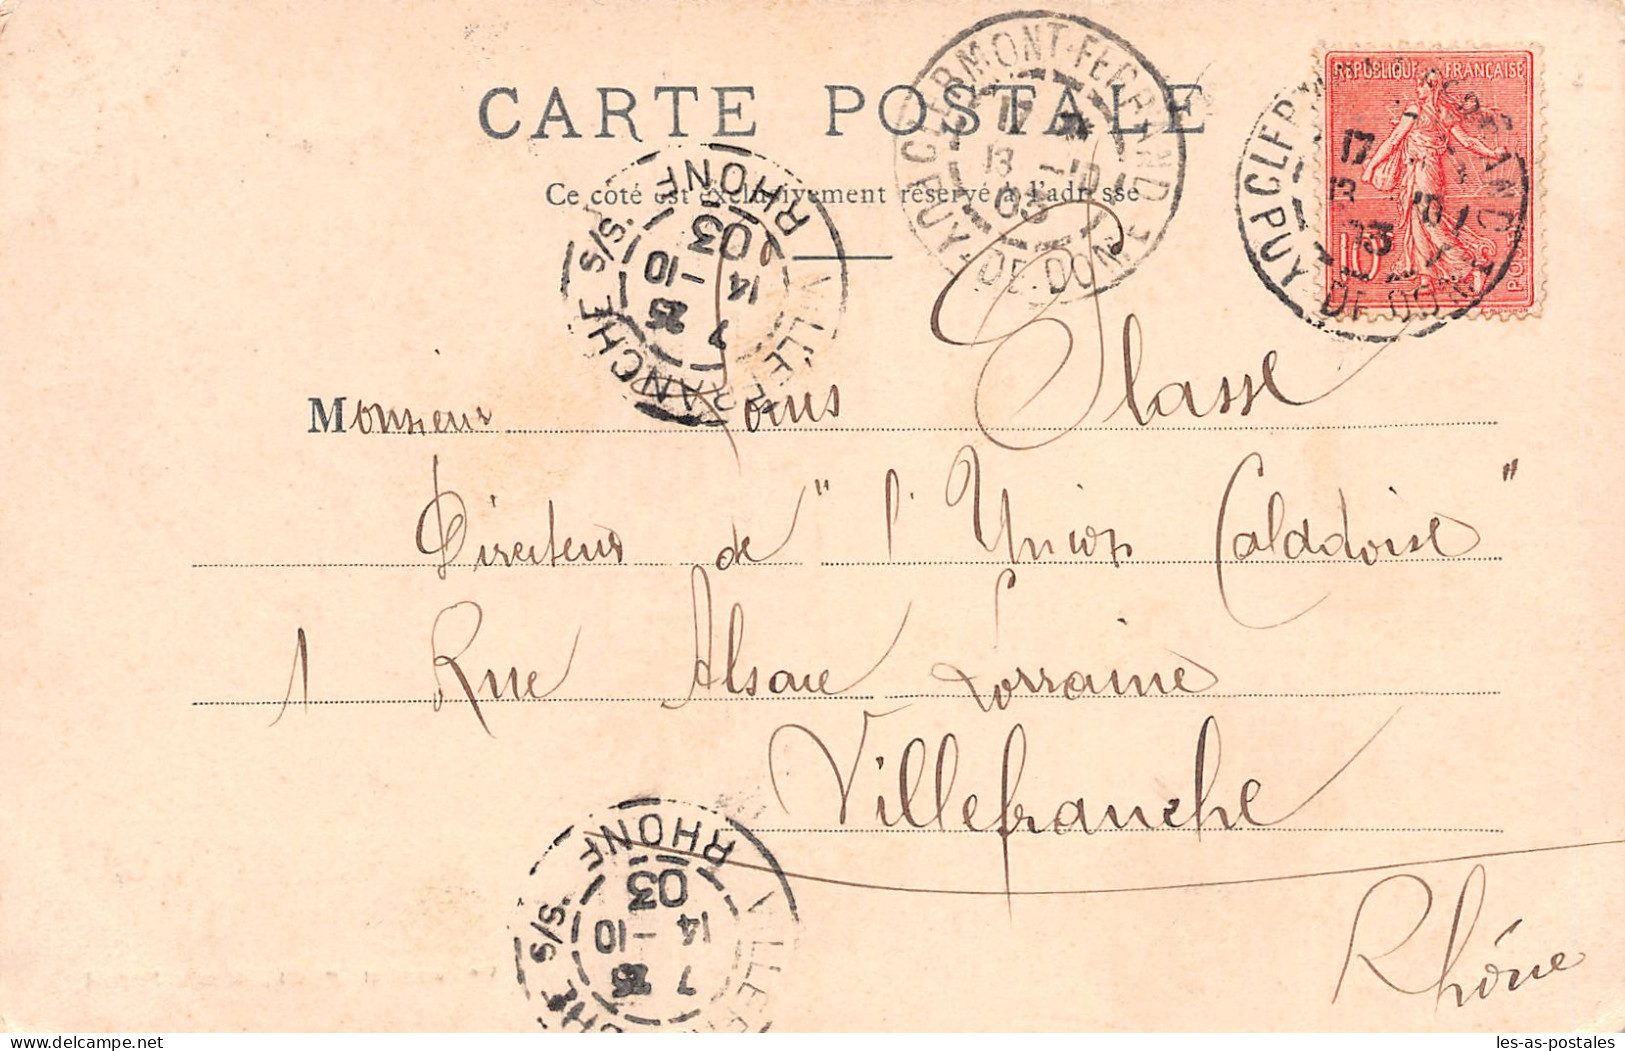 CARTE POSTALE
Ce côté est exclusivement réservé à l'adresse
RÉPUBLIQUE FRANÇAISE
10
CLERMONT-FERRAND
17
13 -10
03
PUY-DE-DOME
CLERMONT-FERRAND
17
13 10
03
PUY-DE-DOME
VILLEFRANCHE S/S.
RHONE
7 25
14 -10
03
Monsieur Louis Plasse
Directeur de "l'Union Caladoise"
1 Rue Alsace Lorraine
Villefranche
Rhône
VILLEFRANCHE S/S.
RHONE
7 25
14 -10
03
les-as-postales